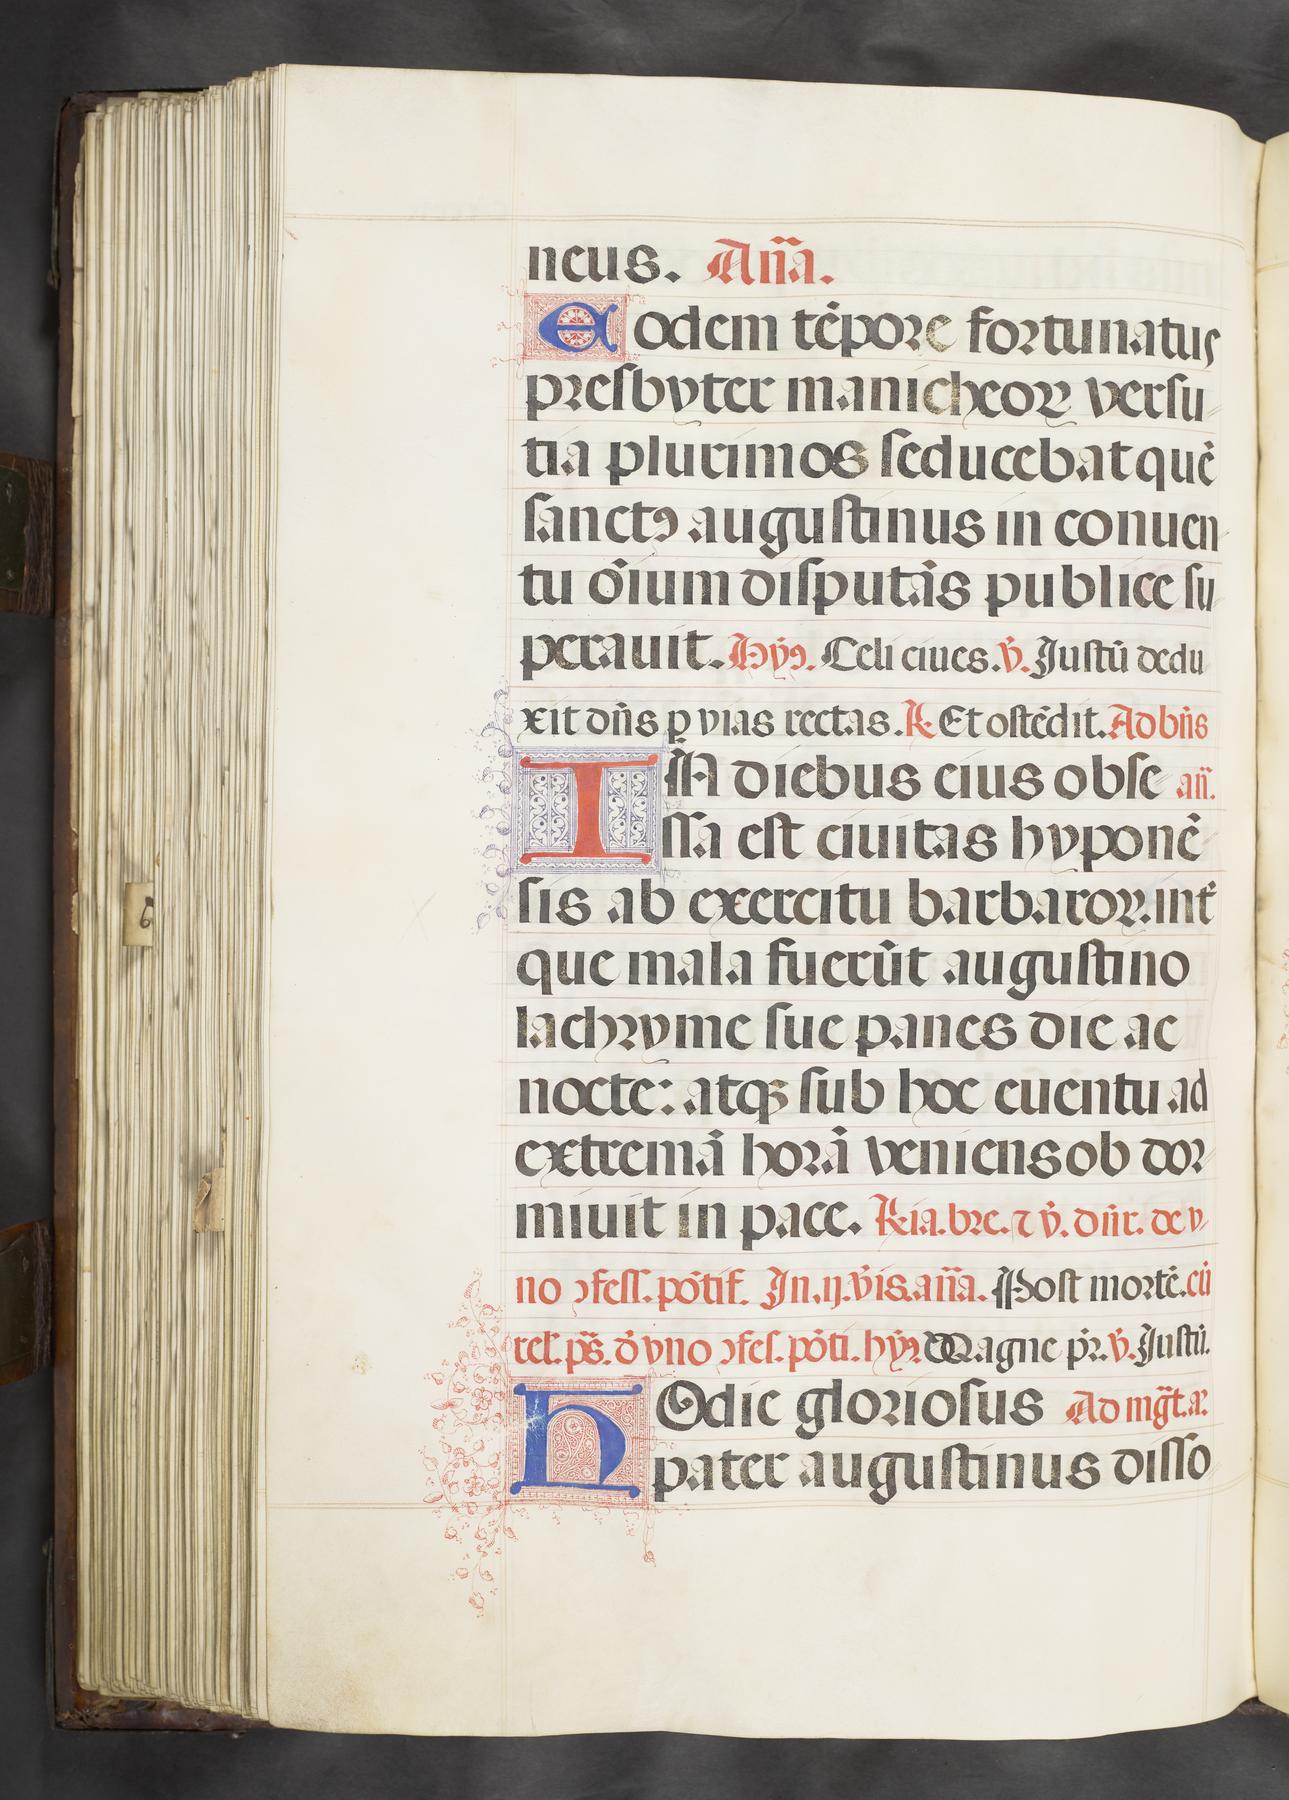 neus. An̄a.
Eodem tēpore fortunatus
presbyter manicheoꝝ versu
tia plurimos seducebat quē
sanctꝰ augustinus in conuen
tu oīum disputās publice su
perauit. Hyꝰ. Celi ciues. v̄. Justū dedu
xit dn̄s ꝑ vias rectas. ℟ Et ostēdit. Ad bn̄s
IN diebus eius obse an̄.
ssa est ciuitas hyponē
sis ab exercitu barbaroꝝ. int̄
que mala fuerūt augustino
lachryme sue panes die ac
nocte: atqꝫ sub hoc euentu ad
extremā horā veniens ob dor
miuit in pace. ℟ia. bre. ⁊ v̄. dn̄r. de v
no ↄfess. pōtif. In .ij. v̄is. an̄a. Post mortē. cū
rel. ps̄. d̄ vno ↄfes. pōti. hȳꝰ Magne pr̄. v̄. Justū.
HOdie gloriosus Ad mḡt. a.
pater augustinus disso
6